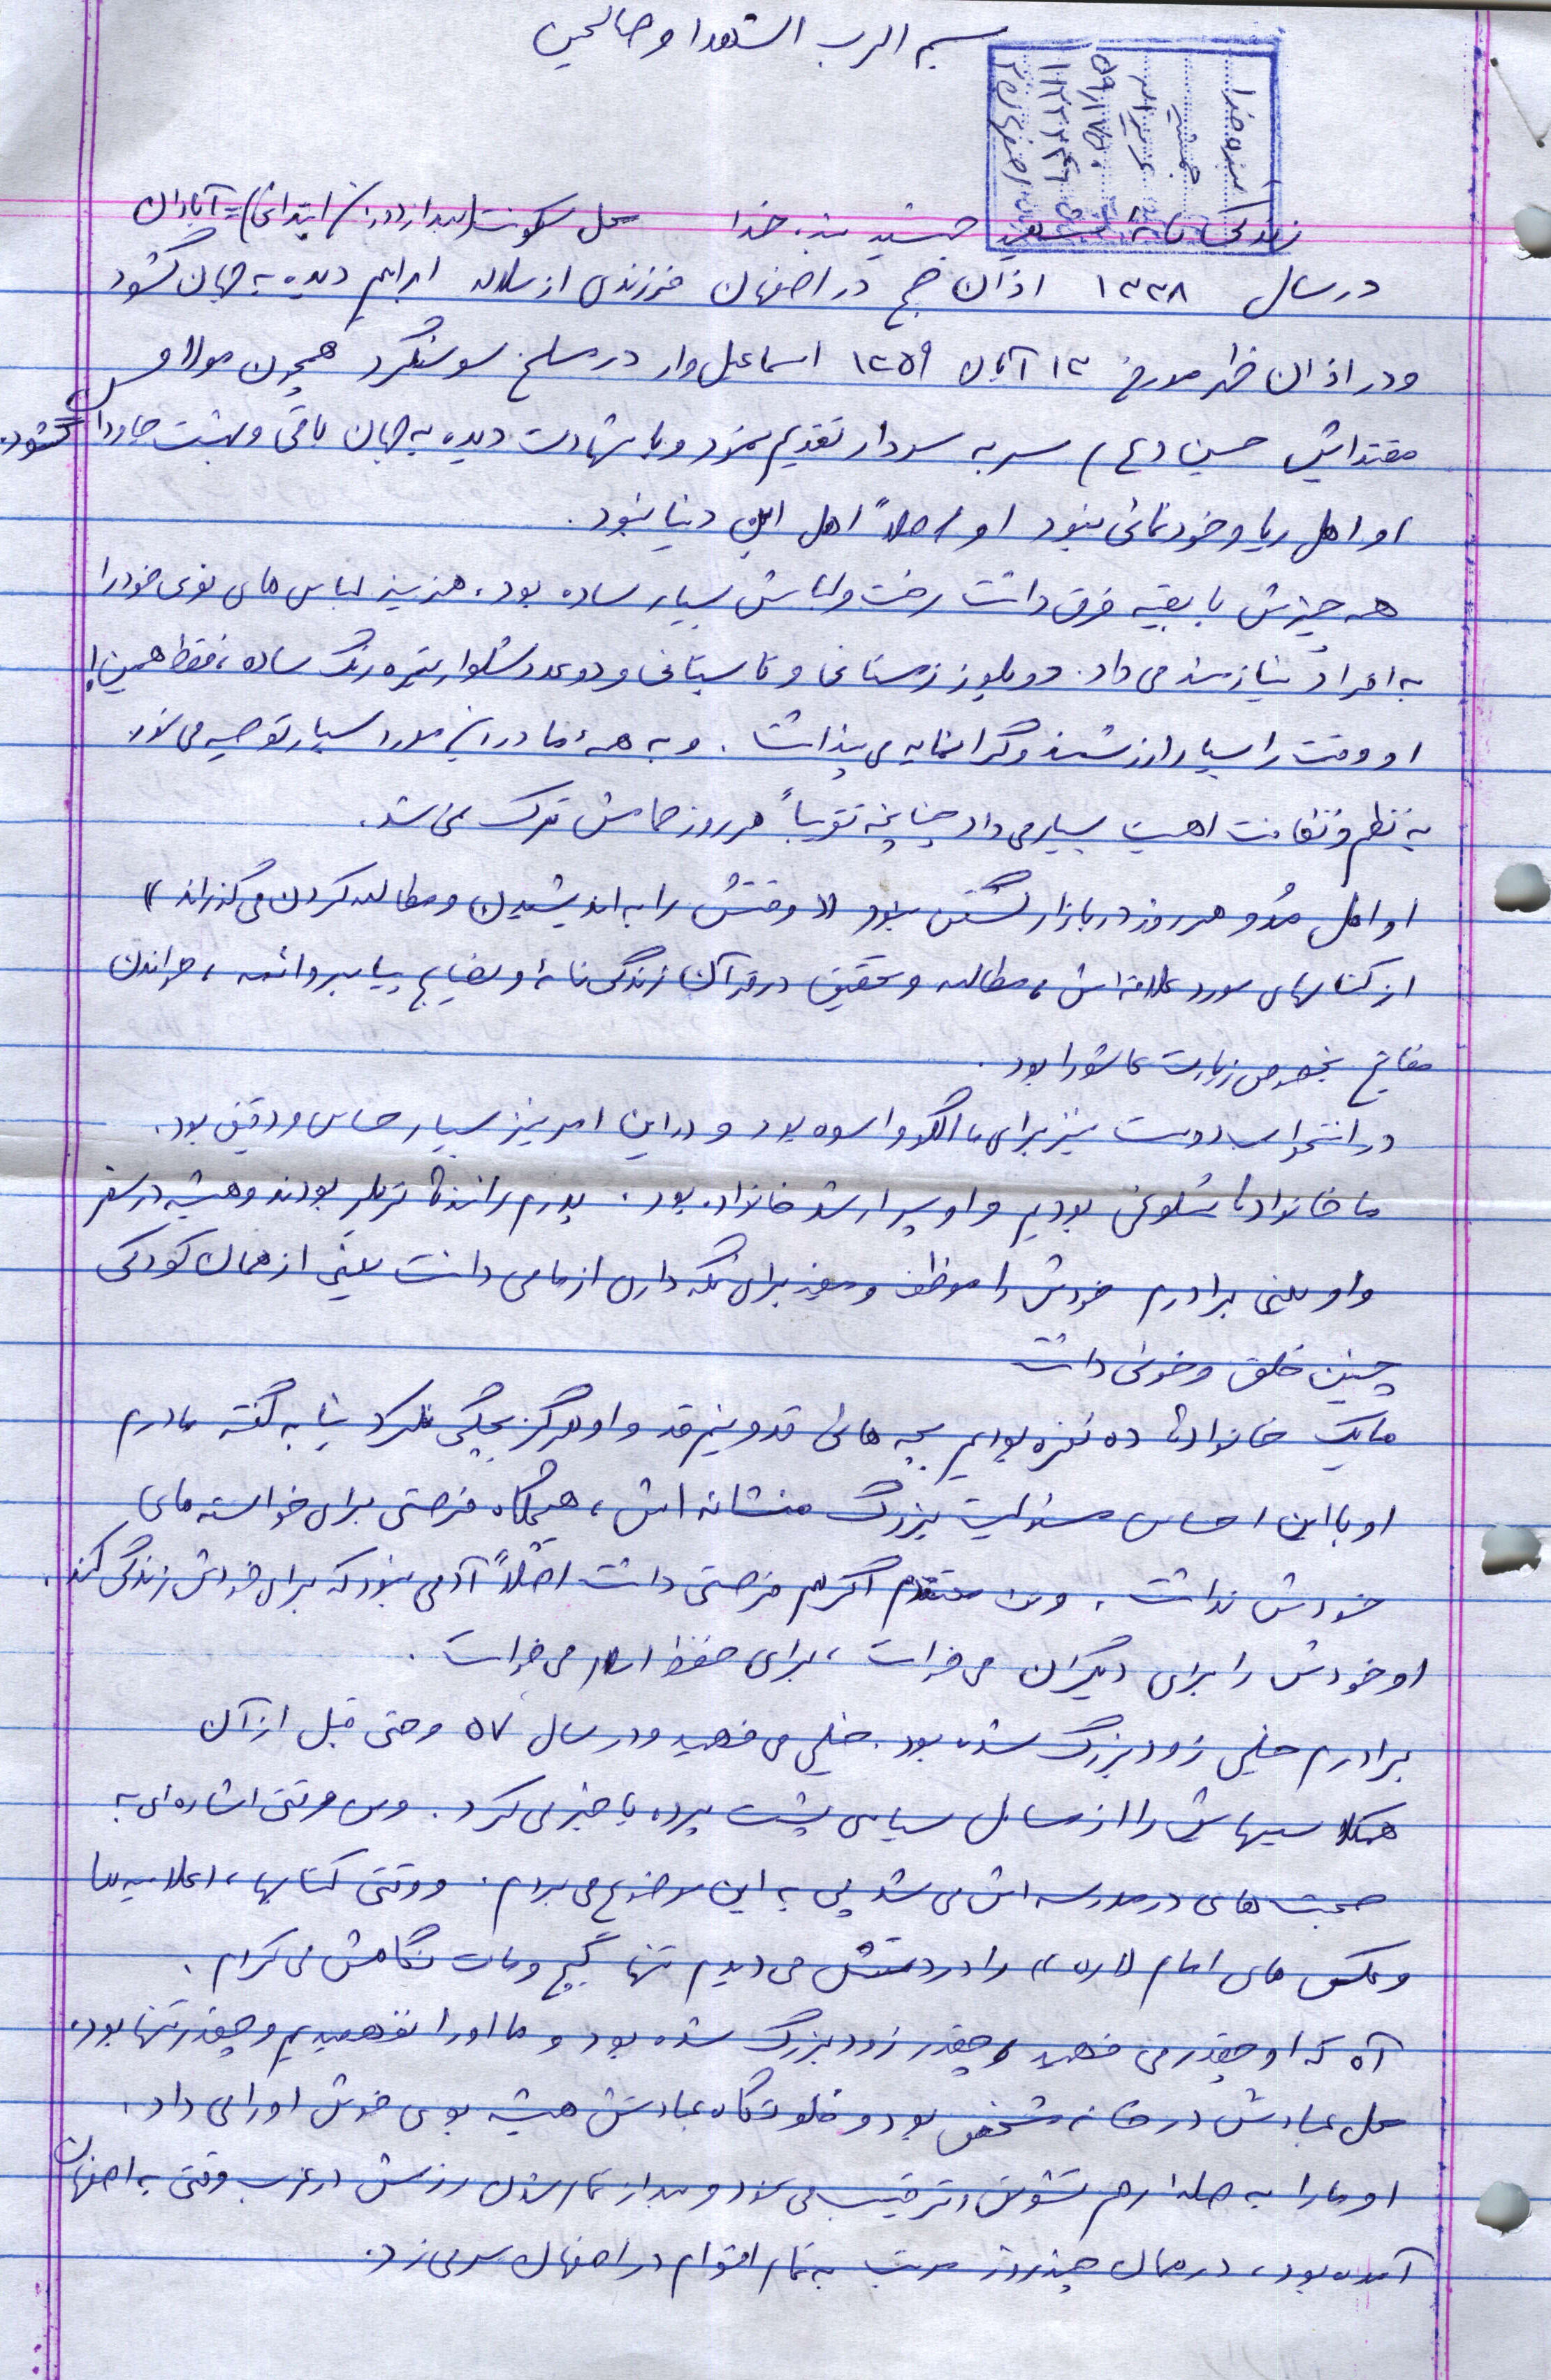 بسم الرب الشهدا و صالحین
بنده خدا
جمشید
زندگی نامهٔ شهید جمشید بنده خدا محل سکونت (بعد از دوران ابتدائی) = آبادان
در سال ۱۳۳۸ اذان صبح در اصفهان فرزندی از سلاله ابراهیم دیده به جهان گشود
و در اذان ظهر مورخ ۱۳ آبان ۱۳۵۹ اسماعیل وار در مسلخ سوسنگرد همچون مولا و
مقتدایش حسین (ع) سر به سردار تقدیم نمود و با شهادت دیده به جهان باقی و بهشت جاودان گشود.
او اهل ریا و خودنمائی نبود او اصلاً اهل این دنیا نبود.
همه چیزش با بقیه فرق داشت رخت و لباسش بسیار ساده بود. هزینه لباس های نوی خود را
به افراد نیازمند می داد. دو بلوز زمستانی و تابستانی و دو عدد شلوار تیره رنگ ساده، فقط همین!
او وقت را بسیار ارزشمند و گرانمایه می پنداشت. و به همهٔ ما در این مورد بسیار توصیه می نمود.
به نظم و نظافت اهمیت بسیار می داد چنانچه تقریباً هر روز حمامش ترک نمی شد.
او اهل مُد و هر روز در بازار گشتن نبود «وقتش را به اندیشیدن و مطالعه کردن می گذراند»
از کتابهای مورد علاقه اش، مطالعه و تحقیق در قرآن زندگی نامهٔ و نصایح پیامبر و ائمه، خواندن
مفاتیح بخصوص زیارت عاشورا بود.
در انتخواب دوست نیز برای ما الگو و اسوه بود و در این امر نیز بسیار حساس و دقیق بود.
ما خانوادهٔ شلوغی بودیم و او پسر ارشد خانواده بود. پدرم رانندهٔ تریلر بودند و همیشه در سفر
و او یعنی برادرم خودش را موظف و مقید برای نگه داری از ما می دانست یعنی از همان کودکی
چنین خلق و خوئی داشت
ما یک خانوادهٔ ده نفره بودیم بچه هائی قد و نیم قد و او هرگز بچگی نکرد بنا به گفته مادرم
او با این احساس مسئولیت بزرگ منشانه اش، هیچگاه فرصتی برای خواسته های
خودش نداشت. و من معتقدم اگر هم فرصتی داشت اصلاً آدمی نبود که برای خودش زندگی کند.
او خودش را برای دیگران می خواست، برای حفظ اسلام می خواست.
برادرم خیلی زود بزرگ شده بود. خیلی می فهمید و در سال ۵۷ و حتی قبل از آن
همکلاسیهایش را از مسائل سیاسی پشت پرده با خبر می کرد. و من وقتی اشاره ای به
صحبت های در مدرسه اش می شد پی به این موضوع می بردم. و وقتی کتابها، اعلامیه ها
و عکس های امام «ره» را در دستش می دیدم تنها گیج و مات نگاهش می کردم.
آه که او چقدر می فهمید و چقدر زود بزرگ شده بود و ما او را نفهمیدیم و چقدر تنها بود.
محل عبادتش در خانه مشخص بود و خلوتگاه عبادتش همیشه بوی خوش او را می داد.
او ما را به صله ارحم تشویق و ترغیب می نمود و بعد از تمام شدن رزمش در غرب وقتی به اصفهان
آمده بود، در همان چند روز مرتب به تمام اقوام در اصفهان سر می زد.